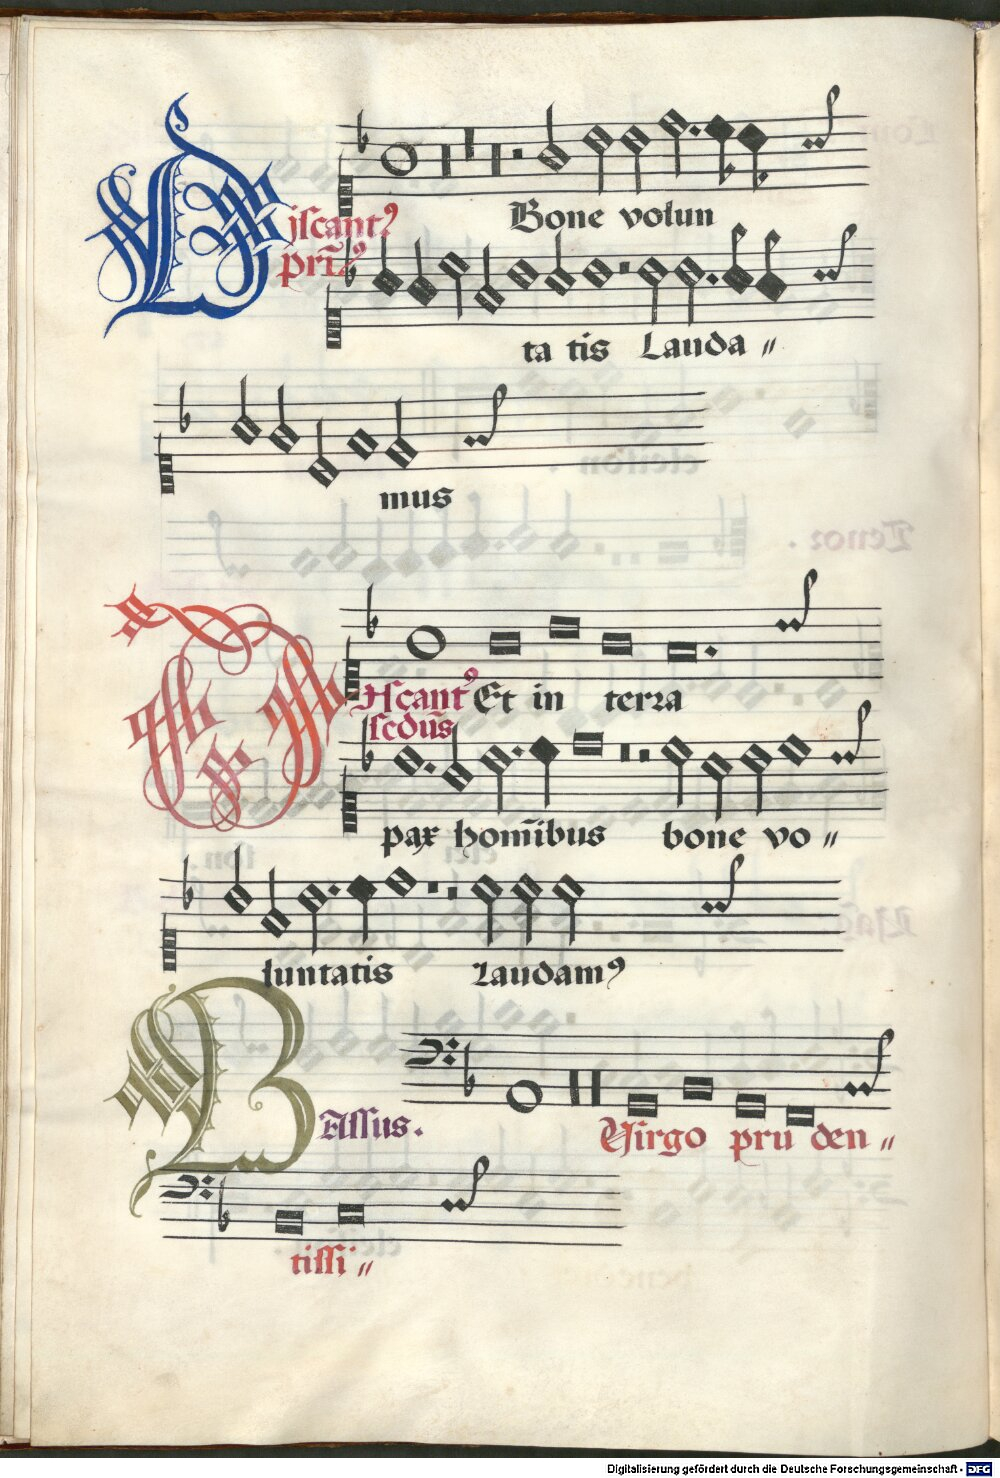 Discantꝰ
Bone volun
pri᷑ꝰ
ta tis Lauda〃
mus
Discantꝰ Et in terra
scd̄us
pax hom̄ibus bone vo〃
luntatis Laudamꝰ
BAssus. Virgo pru den〃
tissi〃
Digitalisierung gefördert durch die Deutsche Forschungsgemeinschaft - DFG